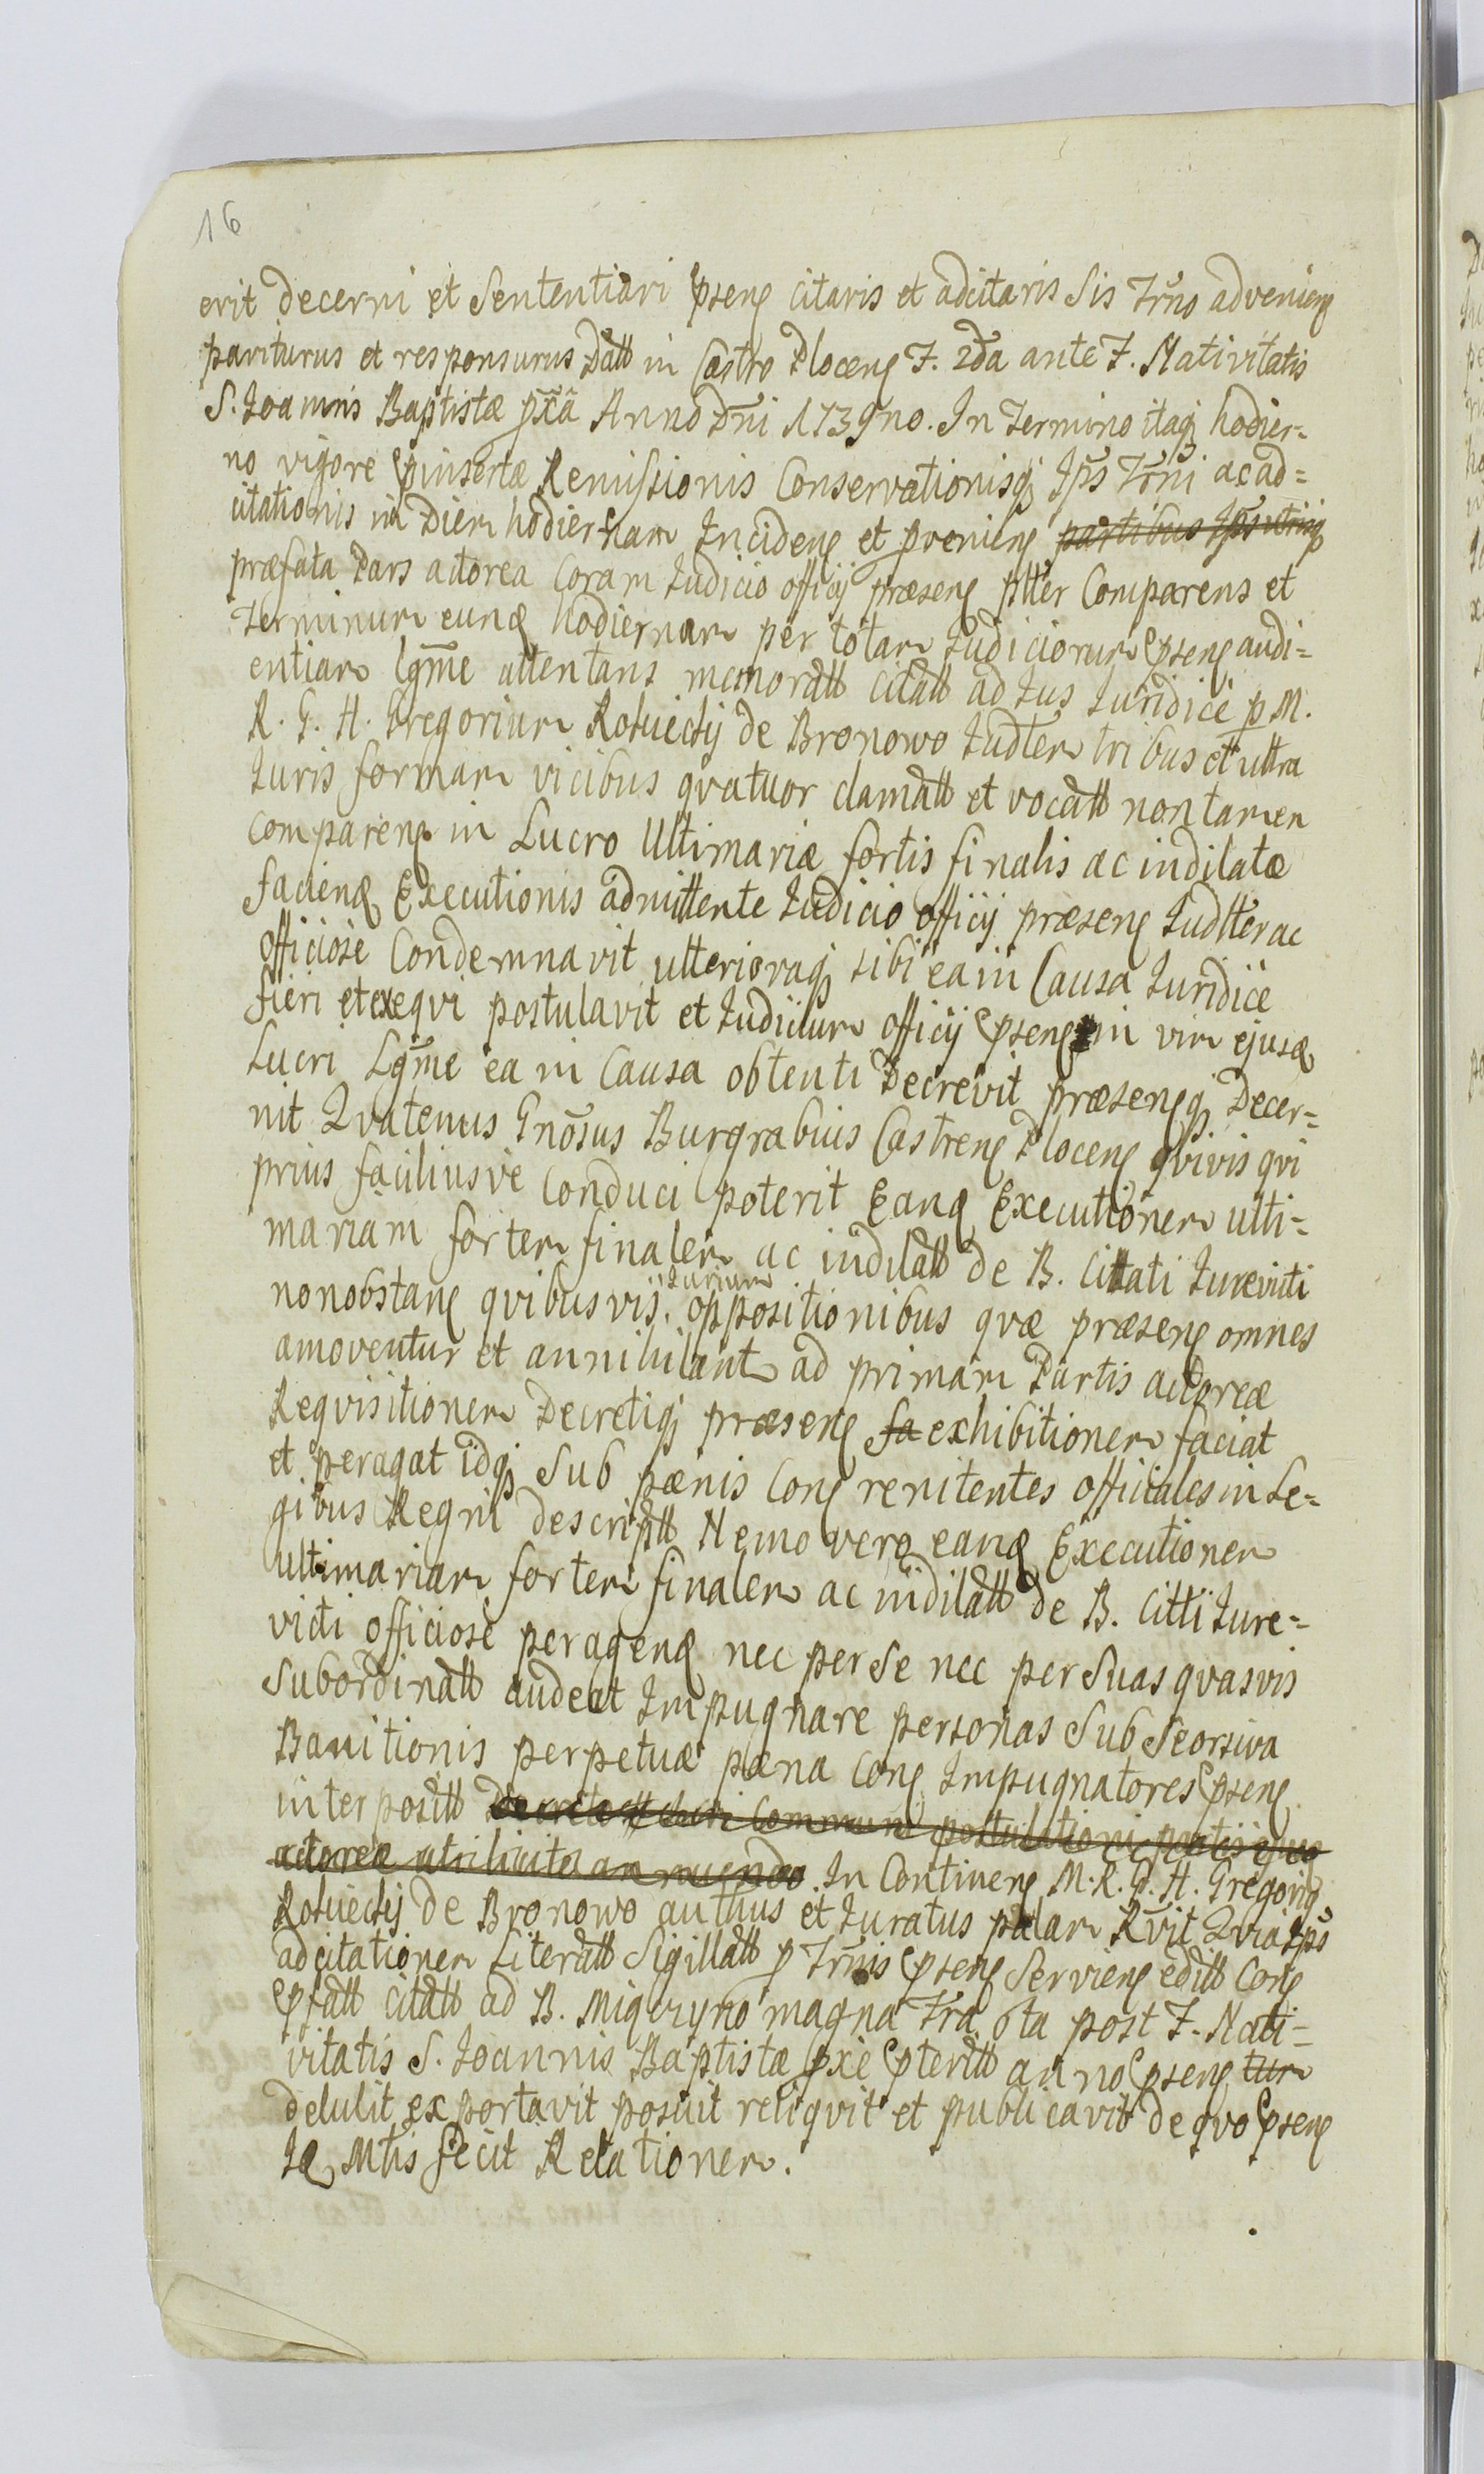 16
erit decerni et Sententiari pseng citaris et adcitaris Sis Trno advenieng
pariturus et responsurus Datt in Castro Ploceng F. 2da ante F. Nativitatis
S. Joannis Baptistæ pxa Anno Dni 1739no. In Termino itaq hodier-
no vigore pinsertæ Remissionis Conservationisq Ips Trni ac ad=
citationis in Diem hodiernam Incideng et pvenieng partibus Ips utrinq
præfata Pars actorea Coram Judicio officij præseng ptter Comparens et
terminum eunq hodiernam per totam Judiciorum pseng audi=
entiam lgme attentans memoratt citatt ad Jus Juridice p M.
R. G. H. Gregorium Rotuichij de Bronowo Judtem tribus et ultra
Juris formam vicibus qvatuor clamatt et vocatt non tamen
compareng in Lucro Ultimariæ fortis finalis ac indilatæ
faciend Executionis admittente Judicio officij præseng Judtter ac
officiose Condemnavit ulterioraq sibi ea in Causa Juridice
fieri et exeqvi postulavit et Judicium officij pseng in vim ejusq
Lucri Lgme ea in Causa obtenti Decrevit præsengq Decer=
nit Qvatenus Gnosus Burgrabius Castreng Ploceng qvivis qvi
prius faciliusve Conduci poterit Eanq Executionem ulti=
mariam fortem finalem ac indilatt de B. Cittati Jurevicti
nonobstang qvibusvis Jurium oppositionibus qvæ præseng omnes
amoventur et annihilant ad primam Partis actoreæ
Reqvisitionem Decretiq præseng fa exhibitionem faciat
et peragat idq Sub pænis Cong renitentes officiales in Le=
gibus Regni descriptt Nemo vero eanq Executionem
ultimariam fortem finalem ac indilatt de B. Citti Jure=
victi officiose peragend nec per Se nec per Suas qvasvis
Subordinatt audeat Impugnare personas Sub Seorsiva
Banitionis perpetuæ pæna Cong Impugnatores pseng
interpositt
actoreæ In Contineng M. R. G. H. Gregorig
Rotuichij de Bronowo authus et Juratus palam Rvit Qvia Ips
adcitationem Literatt Sigillatt p Trnis pseng Servieng editt Cong
pfatt citatt ad B. Migczyno magna Fra 6ta post F. Nati=
vitatis S. Joannis Baptistæ pxe pteritt anno pseng tum
detulit exportavit posuit reliqvit et publicavit de qvo pseng
Iq Mtis fecit Relationem.